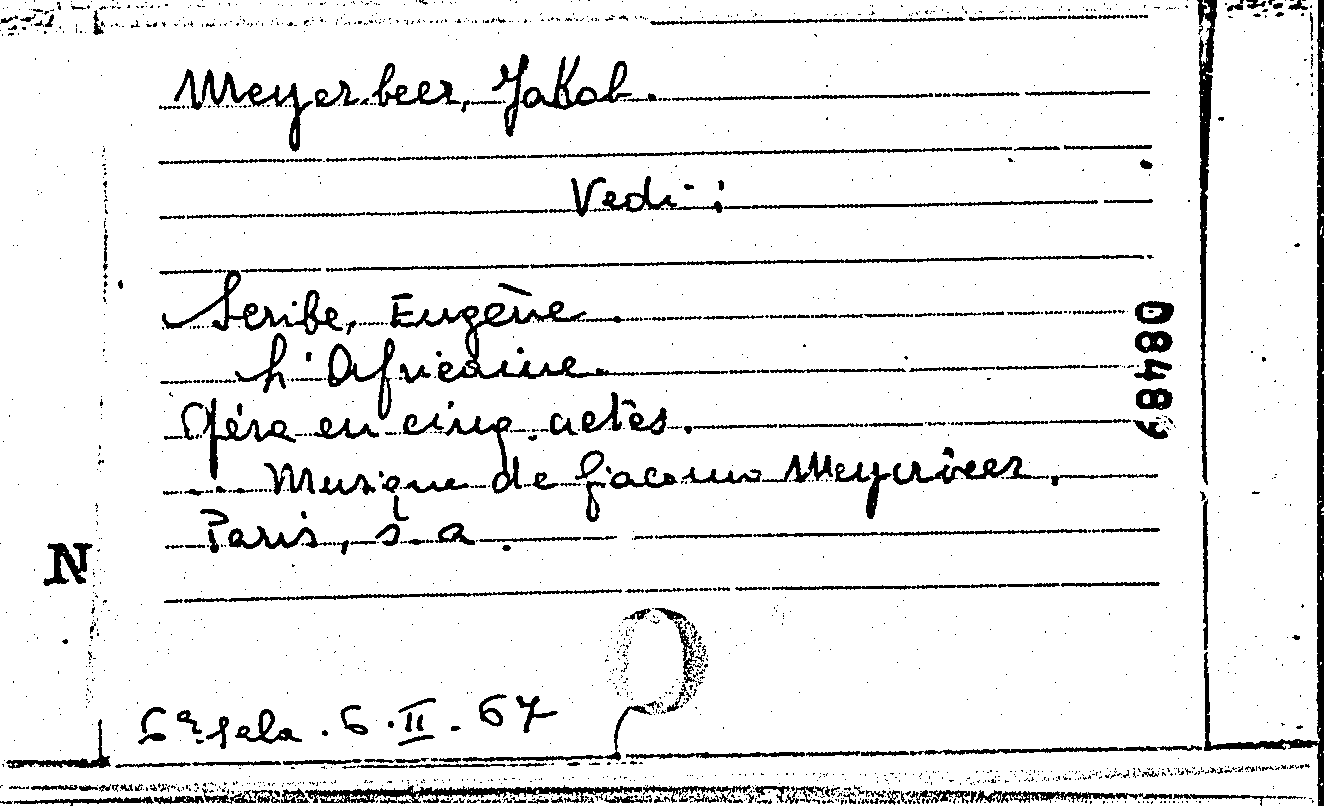 Meyerbeer, Jakob.
Vedi:
Scribe, Eugène.
L'Africaine.
Opéra en cinq actes.
... Musique de Giacomo Meyerbeer.
Paris, s.a.
N
6ª sala. 6.II.67